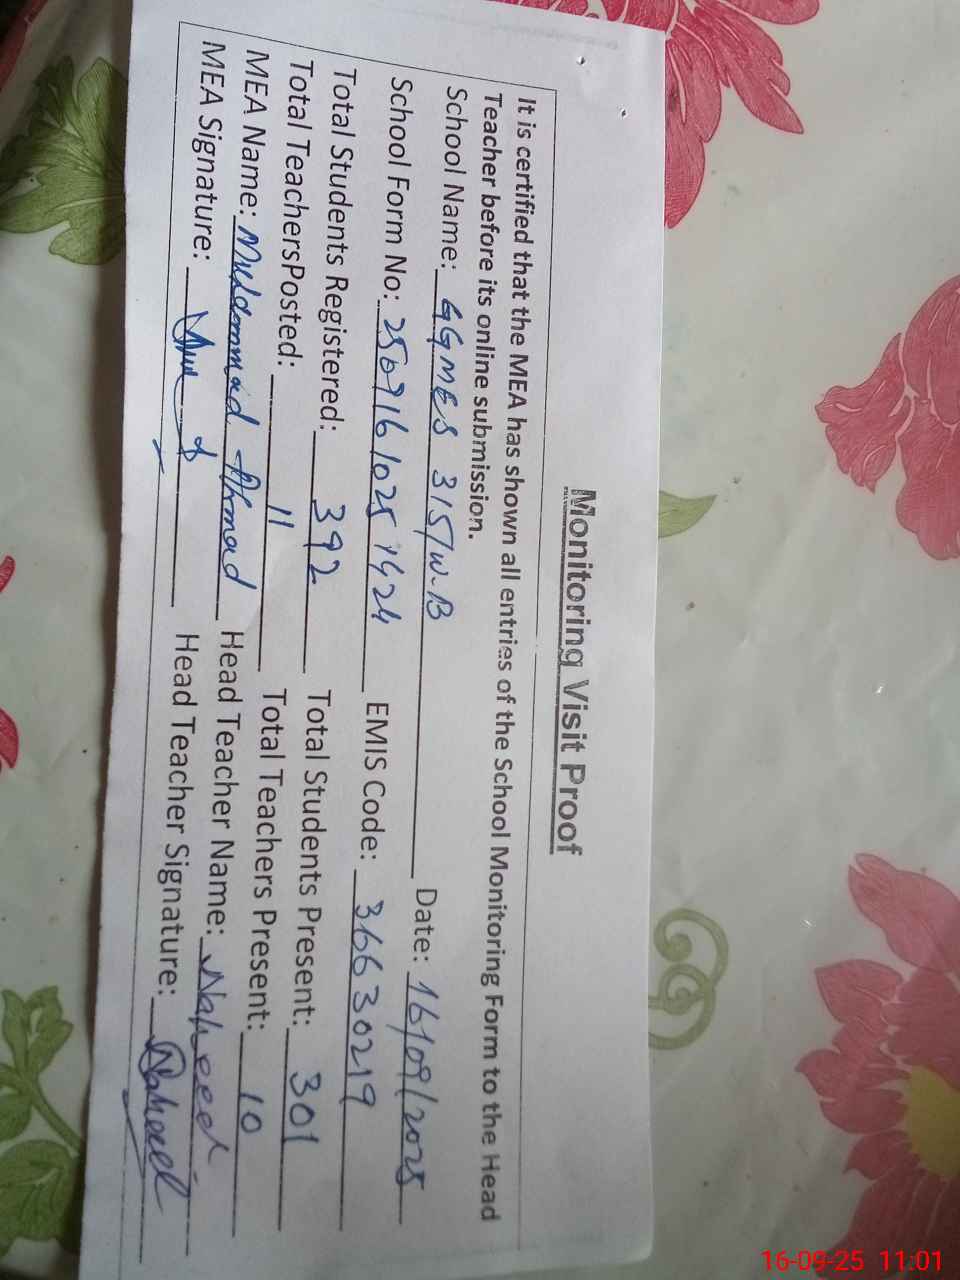 Monitoring Visit Proof
It is certified that the MEA has shown all entries of the School Monitoring Form to the Head
Teacher before its online submission.
School Name: GGMES 315/W-B Date: 16/09/2025
School Form No: 250916 1025 1424 EMIS Code: 36630219
Total Students Registered: 392 Total Students Present: 301
Total TeachersPosted: 11 Total Teachers Present: 10
MEA Name: Muhammad Ahmad Head Teacher Name: Naheed
MEA Signature: Head Teacher Signature: Naheed
16-09-25 11:01